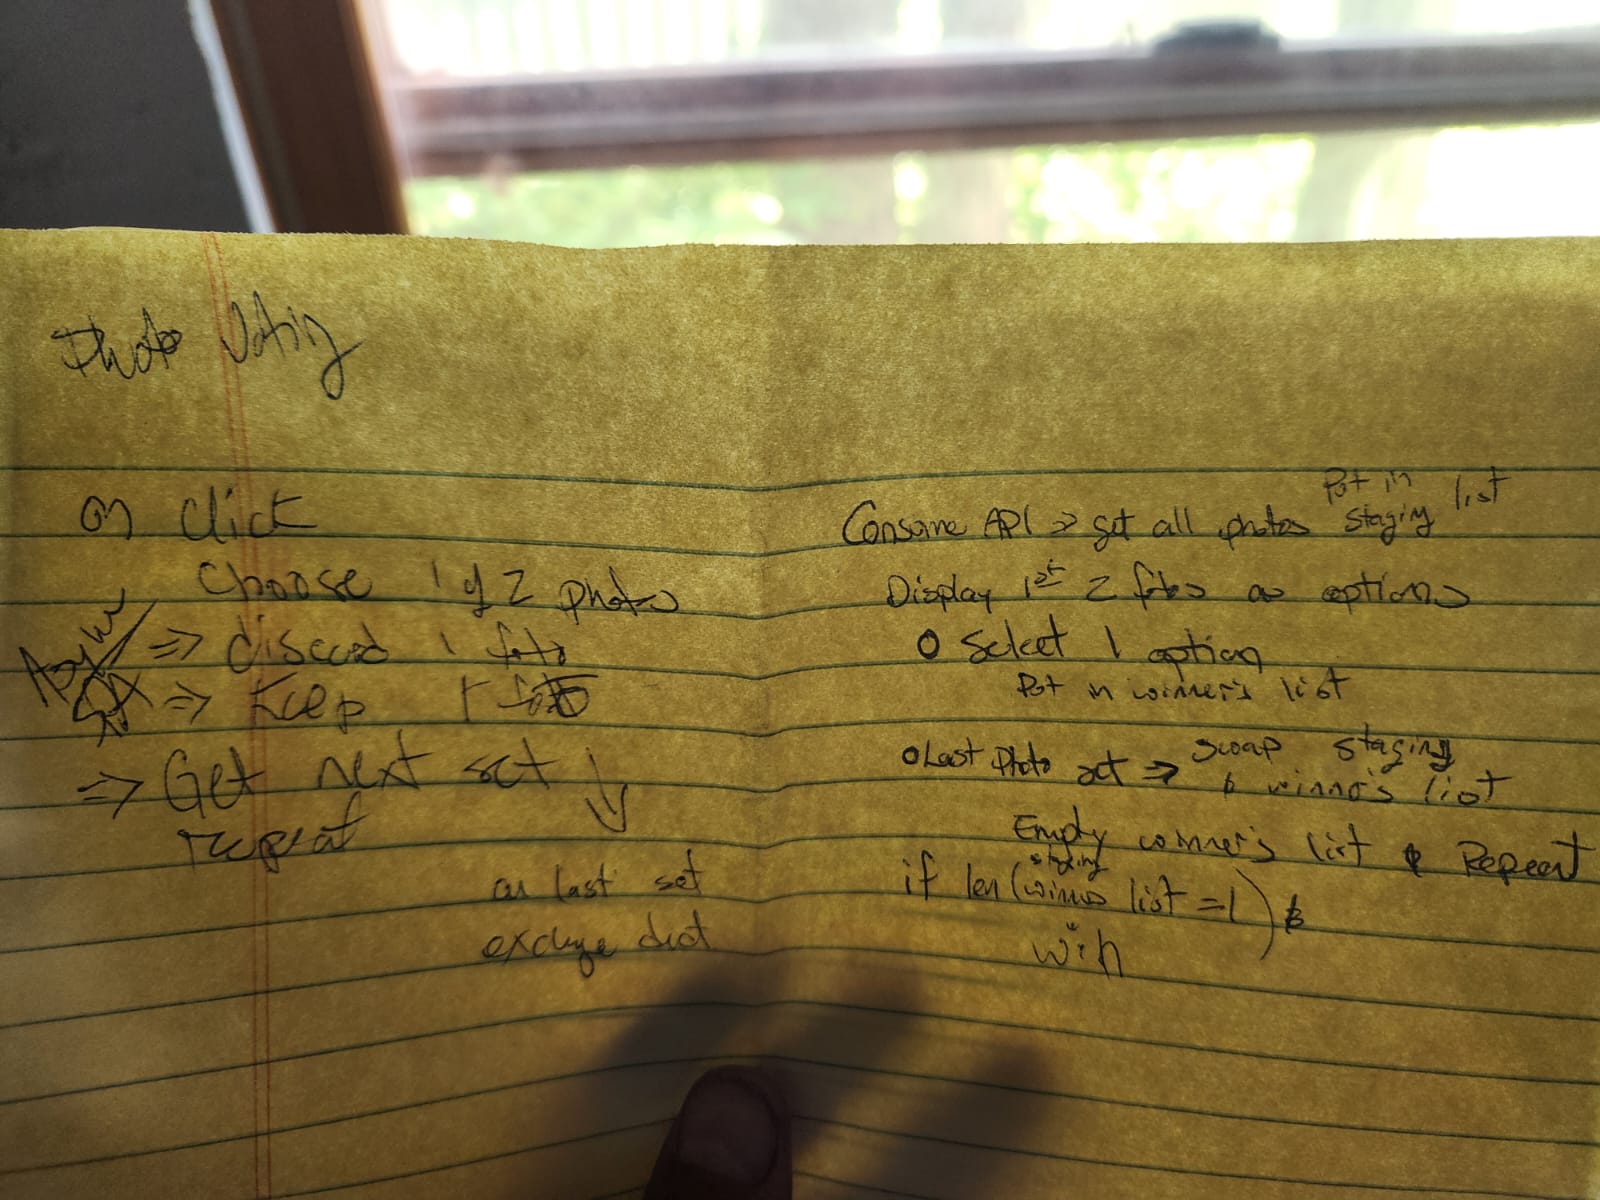 Photo Voting
on Click
Choose 1 of 2 photos
=> discard 1 foto
=> Keep 1 foto
=> Get next set ↓
repeat
on last set
exchange dict
Put in
Consume API => get all photos staging list
Display 1st 2 fotos as options
o Select 1 option
Put in winner's list
o Last Photo set => swap staging
& winner's list
Empty winner's list & Repeat
staging
if len(winners list = 1)
win